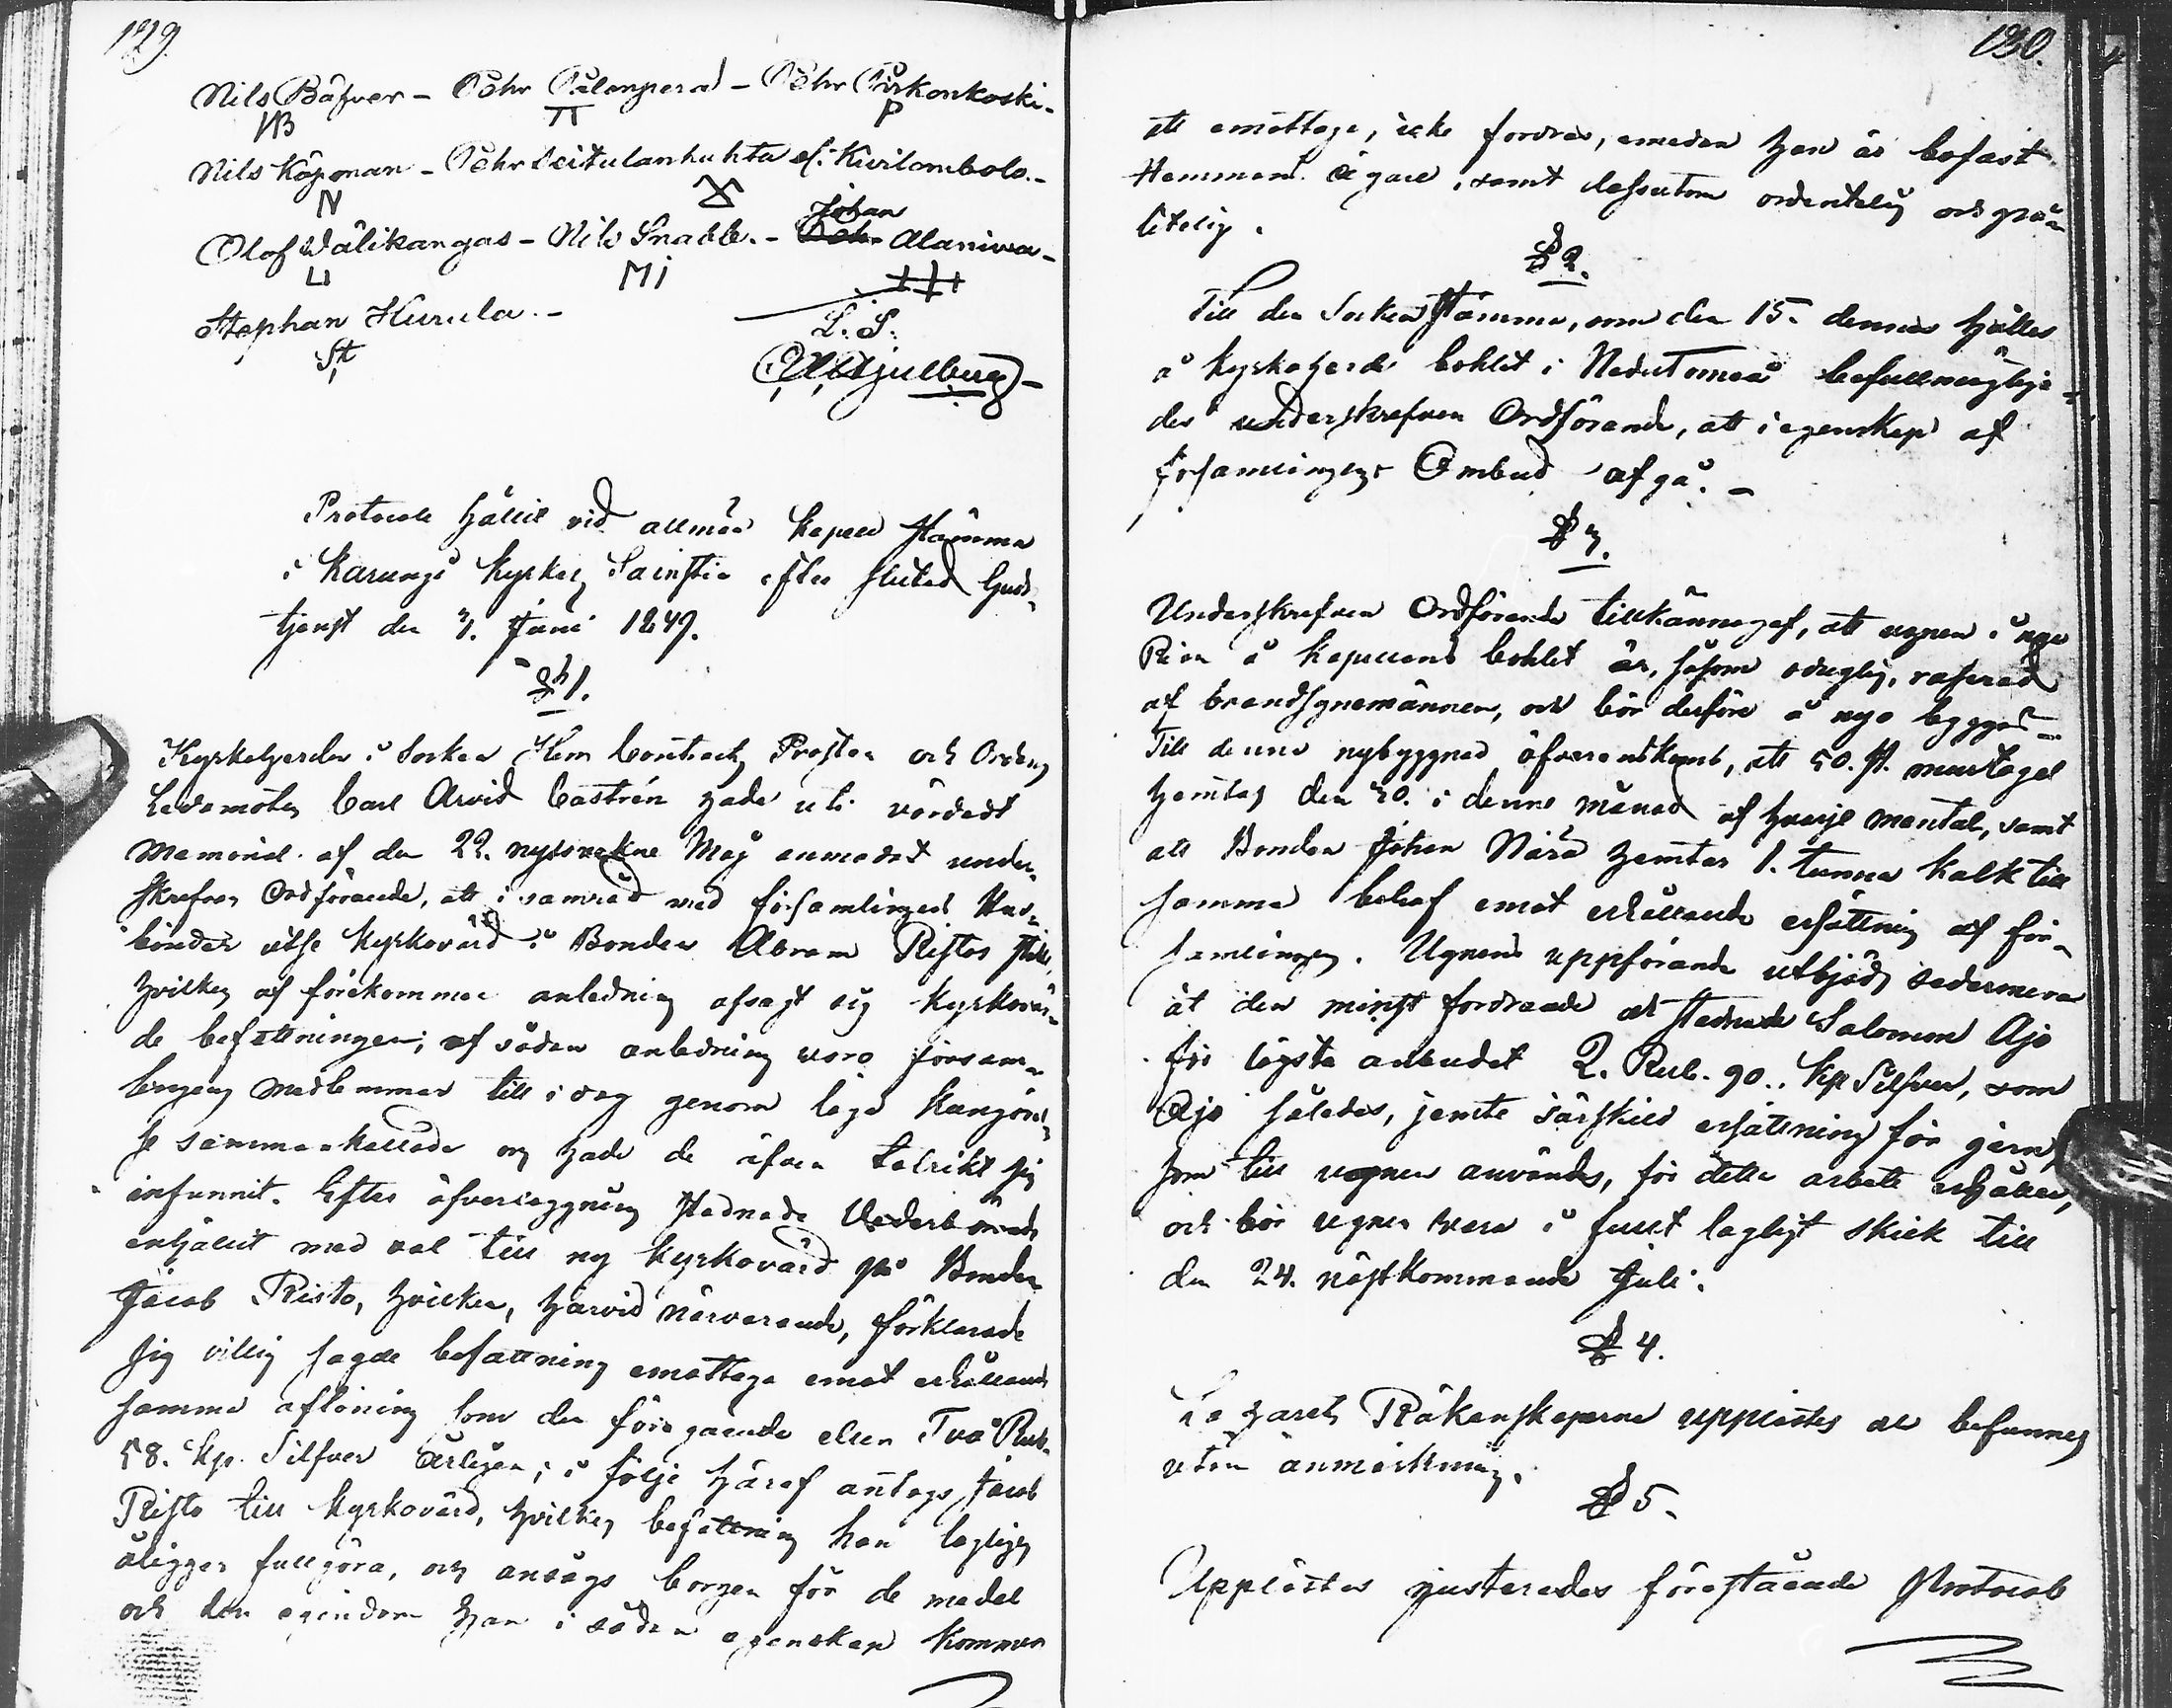 129.
Nils Bäfver - Pehr Pålonperä - Pehr Pirkonkoski -
NB π P
Nils Käpman - Pehr Leitulanhukta ef. Kuivilombolo. -
N
Olof Välikangas - Nils Snabb. - Johan Alaniwa -
LI MI
Stephan Hurula. - L. S.
St
Protocoll hållit vid allmän Kapell stämma
i Karungi Kyrkas Sacristia efter slutad Guds-
tjenst den 3. Juni 1849.
§ 1.
Kyrkoherden i Socken Herr Contracts Prosten och Ordens
Ledamoten Carl Arvid Castrén hade uti vördadt
Memorial af den 22. nyssvekne Maj anmodat under-
skrefven Ordförande, att i samråd med församlingens Hus-
bönder utse Kyrkovärd i Bonden Abram Ristos ställe,
hvilken af förekommen anledning afsagt sig Kyrkovär-
de befattningen; af sådan anledning voro försam-
lingens medlemmar till i dag genom laga Kungörel-
se sammankallade och hade de äfven talrikt sig
infunnit. Efter öfverläggning stadnade Vederbörande
enhällit med val till ny Kyrkovärd på Bonden
Jacob Risto, hvilken, härvid närvarande, förklarade
sig villig sagde befattning emottaga emot erhållande
samma aflöning som den föregående eller Två Rub.
58. kp. Silfver årligen; i följe häraf antogs Jacob
Risto till Kyrkovärd, hvilken befattning han lagligen
åligger fullgöra, och ansågs borgen för de medel
och den egendom han i sådan egenskap kommer
130.
att emottaga, icke fordras, emedan han är bofast
Hemmans ägare, samt dessutom ordentelig och
litelig.
§ 2.
Till den Sockenstämma, som den 15. dennes hålles
å Kyrkoherde bohlet i NederTorneå befullmägtiga-
des underskrefven Ordförande, att i egenskap af
församlingens Ombud afgå. -
§ 3.
Underskrefven Ordförande tillkännagaf, att ugnen i nya
Rian å Kapellans bohlet är, såsom oduglig, raserad
af brandsynemännen, och bör derföre å nyo byggas -
Till denna nybyggnad öfverenskoms, att 50. st. murtegel
hemtas den 20. i denne månad af hvarje mantal, samt
att Bonden Johan Närä hemtar 1. tunna kalk till
samma behof emot erhållande ersättning af för-
samlingen. Ugnens uppförande utbjöds sedermera
åt den minst fordrande och stadnade Salomon Ajo
för lägsta anbudet 2. Rub. 90. kp Silfver, som
Ajo således, jemte särskild ersättning för järn
som till ugnen användes, för detta arbete erhåller,
och bör ugnen vara i fullt lagligt skick till
den 24. nästkommande Juli.
§ 4.
Lazarets Räkenskaperna upplästes och befunnos
utan anmärkning.
§ 5.
Upplästes justerades förestående Protocoll